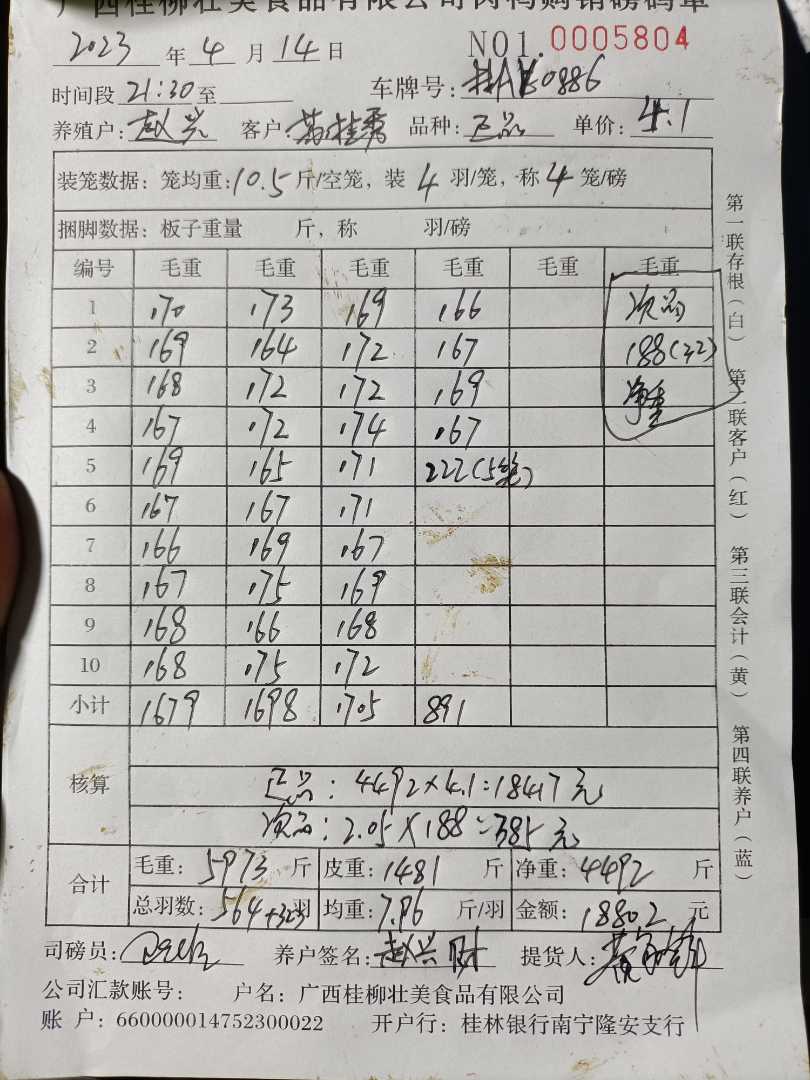 广西桂柳壮美食品有限公司肉鸭购销磅码单
2023 年 4 月 14 日 NO1.0005804
时间段 21:30 至 车牌号: 0886
养殖户: 赵兴 客户: 品种: 正品 单价: 4.1
装笼数据: 笼均重: 10.5 斤/空笼, 装 4 羽/笼, 称 4 笼/磅
捆脚数据: 板子重量 斤, 称 羽/磅
编号 毛重 毛重 毛重 毛重 毛重 毛重
1 170 173 169 166 次品
2 169 164 172 167 188(32)
3 168 172 172 169 净重
4 167 172 174 167
5 169 165 171 222(5笼)
6 167 167 171
7 166 169 167
8 167 175 169
9 168 166 168
10 168 175 172
小计 1679 1698 1705 891
核算
正品: 4492×4.1=18417元
次品: 2.05×188=385元
合计
毛重: 5973 斤 皮重: 1481 斤 净重: 4492 斤
总羽数: 564+32羽 均重: 7.96 斤/羽 金额: 18802 元
司磅员: 养户签名: 赵兴财 提货人:
公司汇款账号: 户名: 广西桂柳壮美食品有限公司
账 户: 660000014752300022 开户行: 桂林银行南宁隆安支行
第一联存根(白) 第二联客户(红) 第三联会计(黄) 第四联养户(蓝)